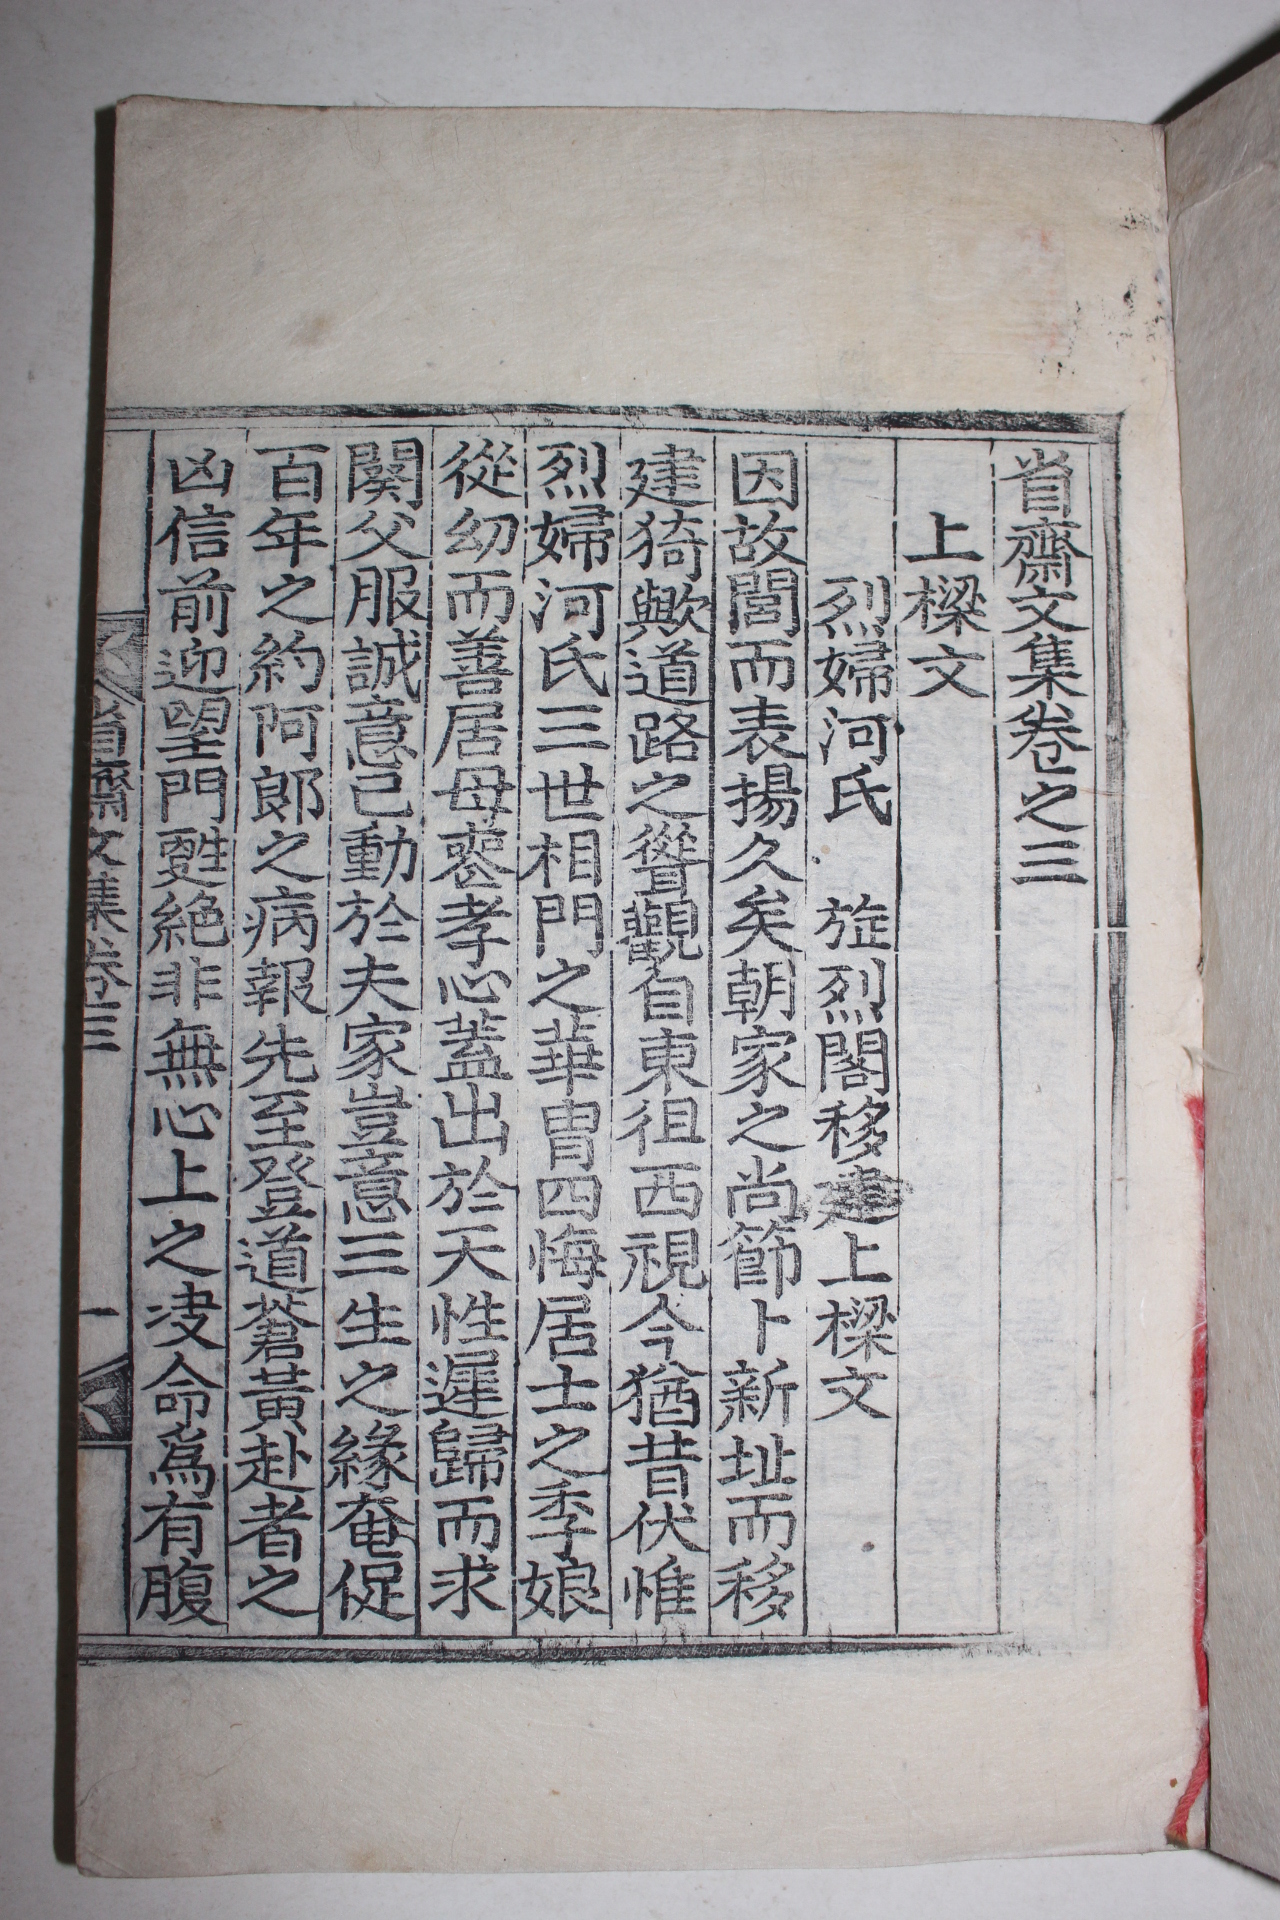 省齋文集卷之三
上樑文
烈婦河氏 旌烈閣移建上樑文
因故閭而表揚久矣朝家之尚節卜新址而移
建猗歟道路之聳觀自東徂西視今猶昔伏惟
烈婦河氏三世相門之華冑四悔居士之季娘
從幼而善居母喪孝心蓋出於天性遲歸而求
闋父服誠意已動於夫家豈意三生之緣奄促
百年之約阿郞之病報先至登道蒼黃赴者之
凶信前迎望門甦絕非無心上之決命爲有腹
省齋文集卷三 一